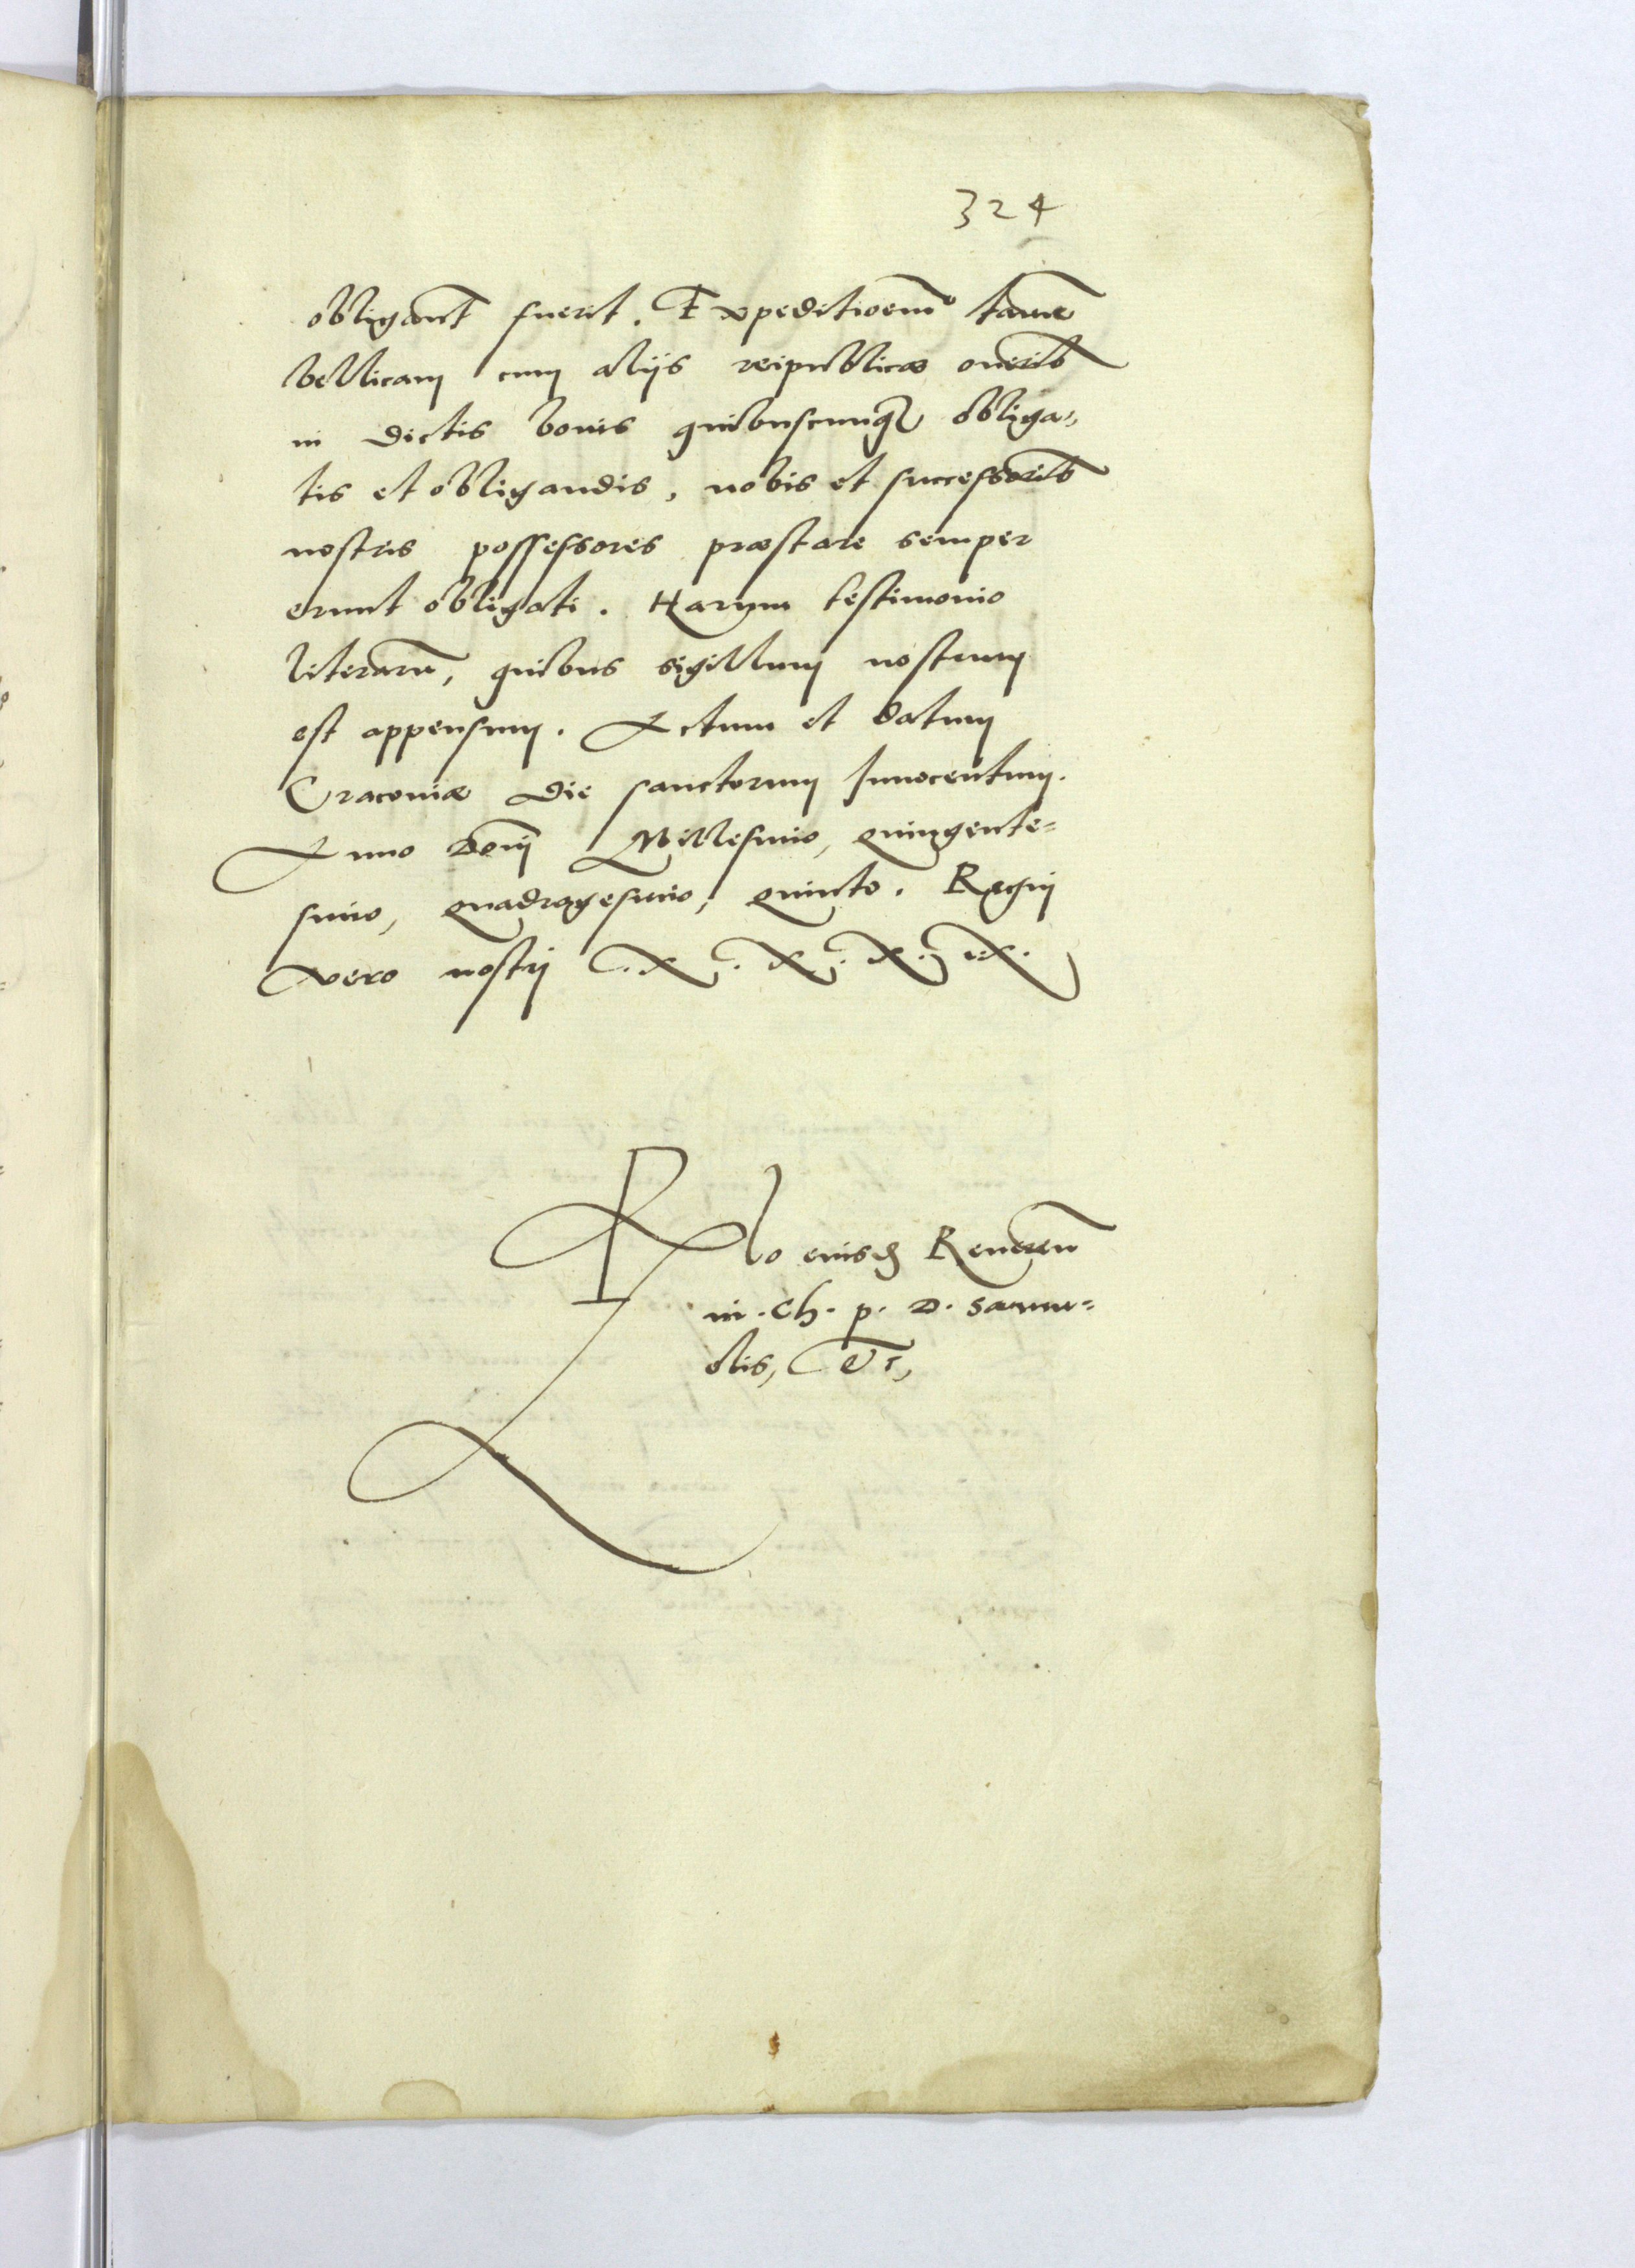 324
obligant fuerit. Expeditioem tame
bellicam cum alijs reipublicæ onerib
in dictis bonis quibuscunq obliga„
tis et obligandis, nobis et successorib
nostris possessores præstare semper
erunt obligati. Harum testimonio
literaru, quibus sigillum nostrum
est appensum. Actum et datum
Cracoviæ die sanctorum Innocentum.
Anno Domj Millesimo, quingente=
simo, quadragesimo, quinto. Regnj
vero nostrj .X.X.X.IX.
Rlo eiusd Reveren
in . Ch. p. D. Samu=
elis, Etc,